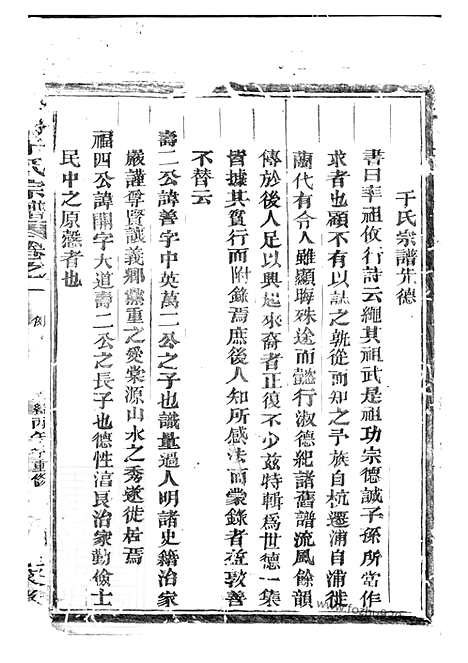 于氏宗譜世德
書曰率祖攸行詩云繩其祖武是祖功宗德誠子孫所當作
求者也顧不有以誌之孰從而知之予族自杭遷浦自浦徙
蘭代有令人雖顯晦殊途而懿行淑德紀諸舊譜流風餘韻
傳於後人足以興起來裔者正復不少兹特輯為世德一集
皆據其實行而附錄焉庶後人知所感法而蒙錄者益敦善
不替云
壽二公諱善字中英萬二公之子也識量過人明諸史籍治家
嚴謹尊賢誠義鄉黨重之愛棠源山水之秀遂徙居焉
福四公諱開字大道壽二公之長子也德性溫良治家勤儉士
民中之原慤者也
于氏宗譜卷之一
丙午年重修